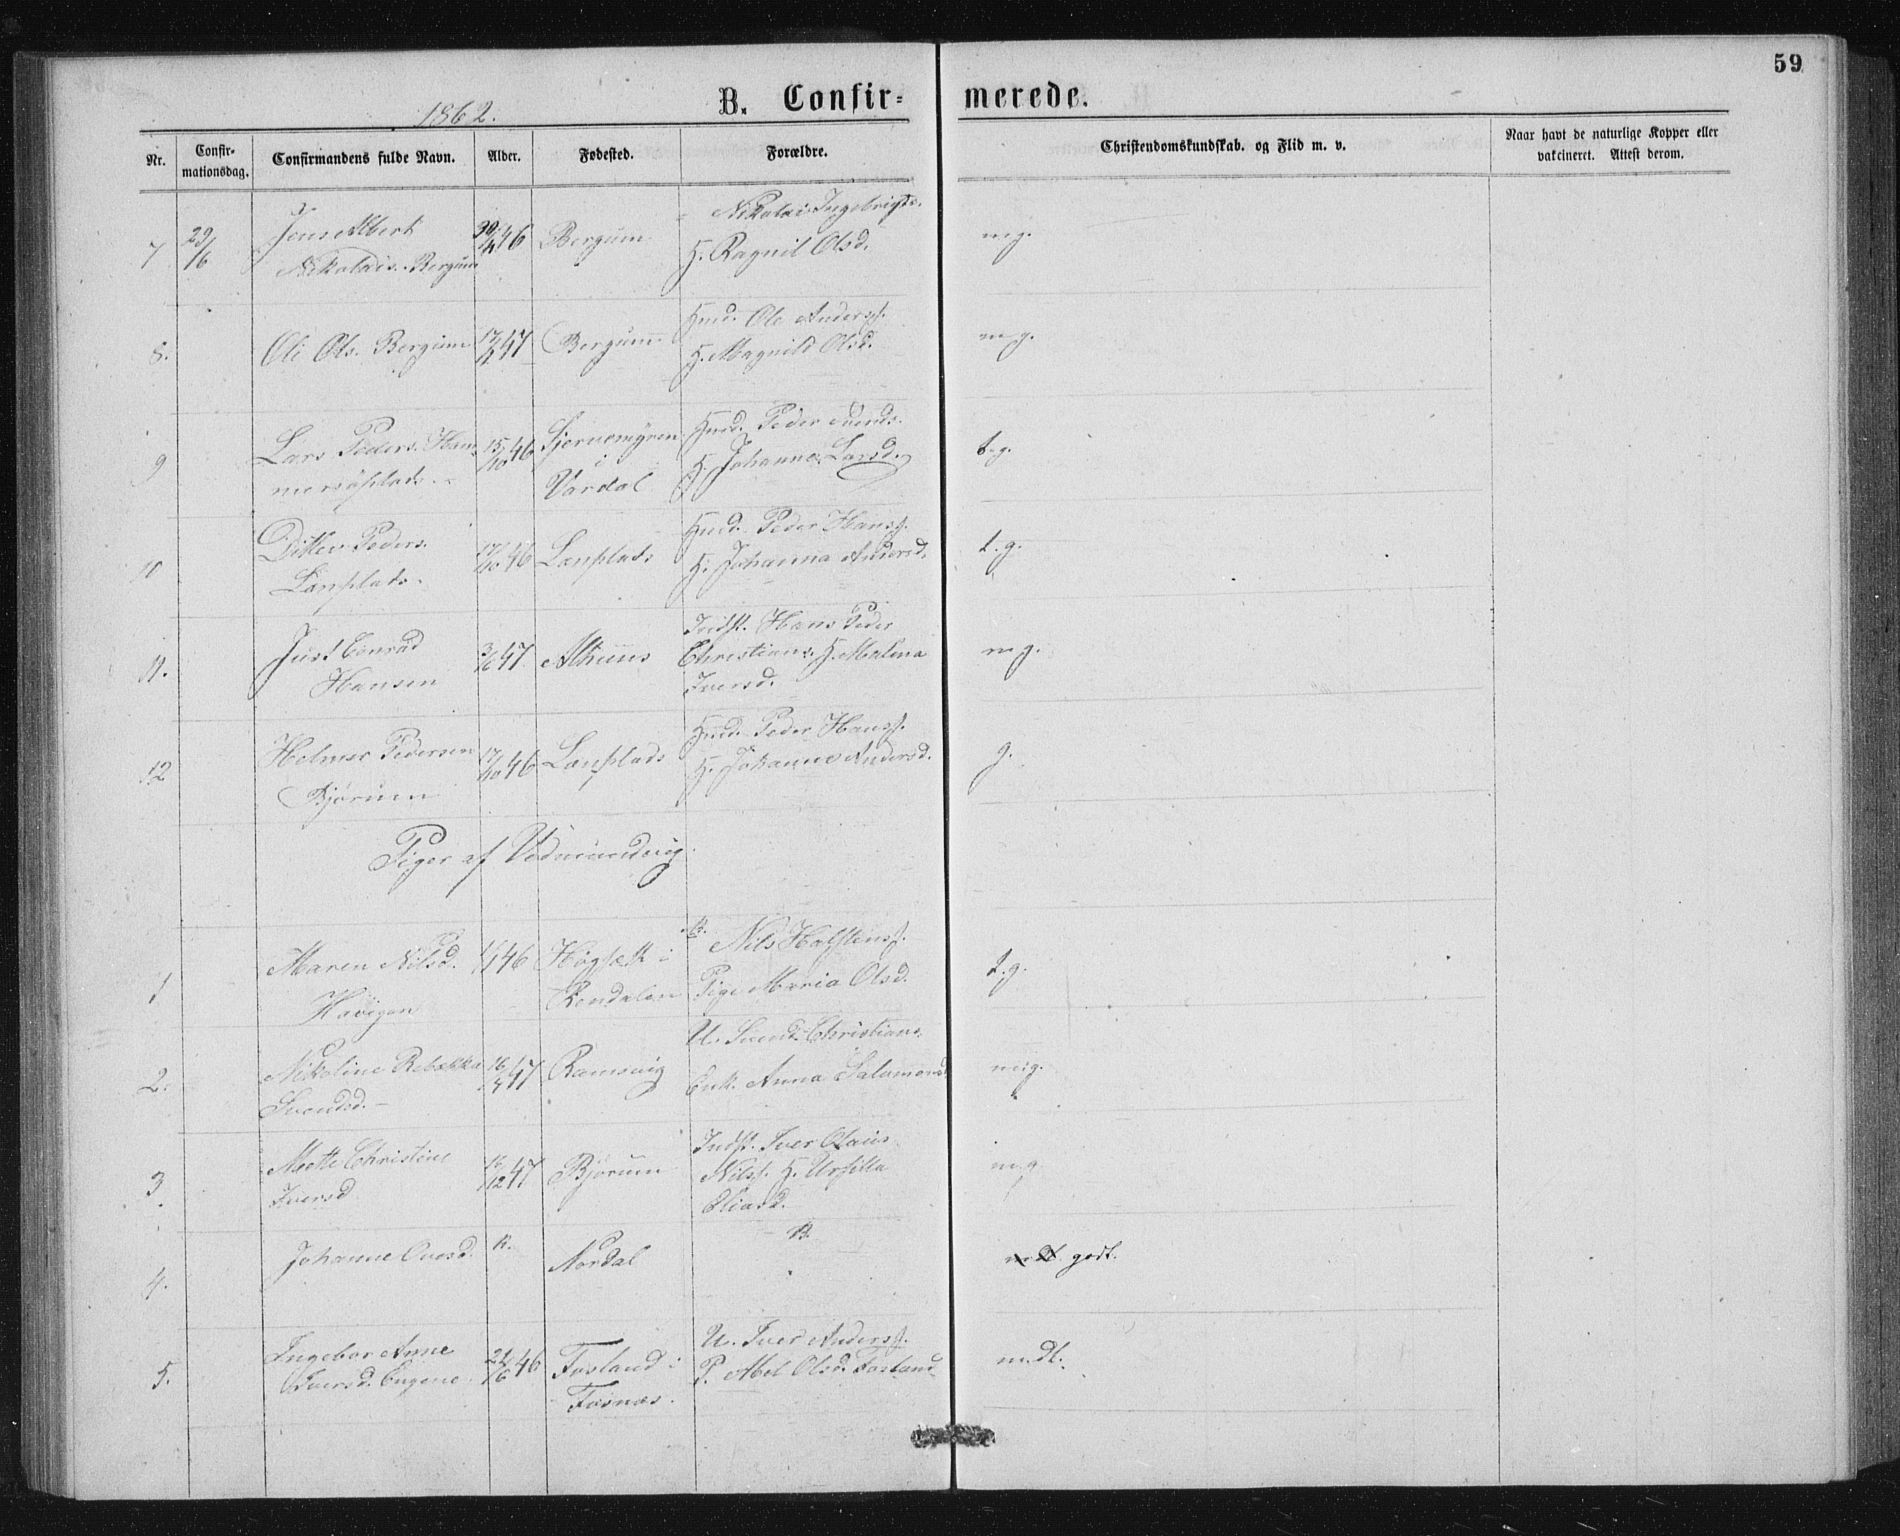 59
1862.
B. Confir-
merede.
Nr.
Confir-
mationsdag.
Confirmandens fulde Navn.
Alder.
Fødested.
Forældre.
Christendomskundskab. og Flid m. v.
Naar havt de naturlige Kopper eller
vakcineret. Attest derom.
7
29/6
Jens Albert
Nikolais. Bergum
46
Bergum
Nikolai Ingebrigts.
H. Ragnil Olsd.
m.g.
8.
Ole Ols. Bergum
47
Bergum
Hmd. Ole Anderss.
H. Magnild Olsd.
m.g.
9
Lars Peders. Ham-
15/10 46
i
Værdal
Hmd. Peder
H. Johanna Larsd.
t.g.
10
Ditlev Peders.
Lanplads.
17/10 46
Lanplads
Hmd. Peder Hanss.
H. Johanna Andersd.
t.g.
11.
Just Conrad
Hansen
3/6 47
Alhuus
Indst. Hans Peder
Christians. H. Malena
Iversd.
m.g.
12
Helmer Pedersen
Bjørum
17/10 46
Lanplads
Hmd. Peder Hanss.
H. Johanna Andersd.
g.
Piger af Vedmundvig.
1
Maren Nilsd.
46
i
Rendalen
Nils Halstenss.
Pige Maria Olsd.
t.g.
2.
Nikoline Rebekka
Svendsd.
47
Ramsvig
U. Svend Christians.
Enk. Anna Salamonsd.
m.g.
3.
Mette Christine
Iversd
16/12 47
Bjørum
Indst. Iver Olaus
Nilss. H. Ursilla
Eliasd.
m.g.
4.
Johanne Ovesd.
Nordal
godt.
5.
Ingebor Anna
Iversd. Eugene
24/6 46
Fosland i
Fosnæs.
U. Iver Anderss.
P. Abel Olsd. Fosland
m.dl.